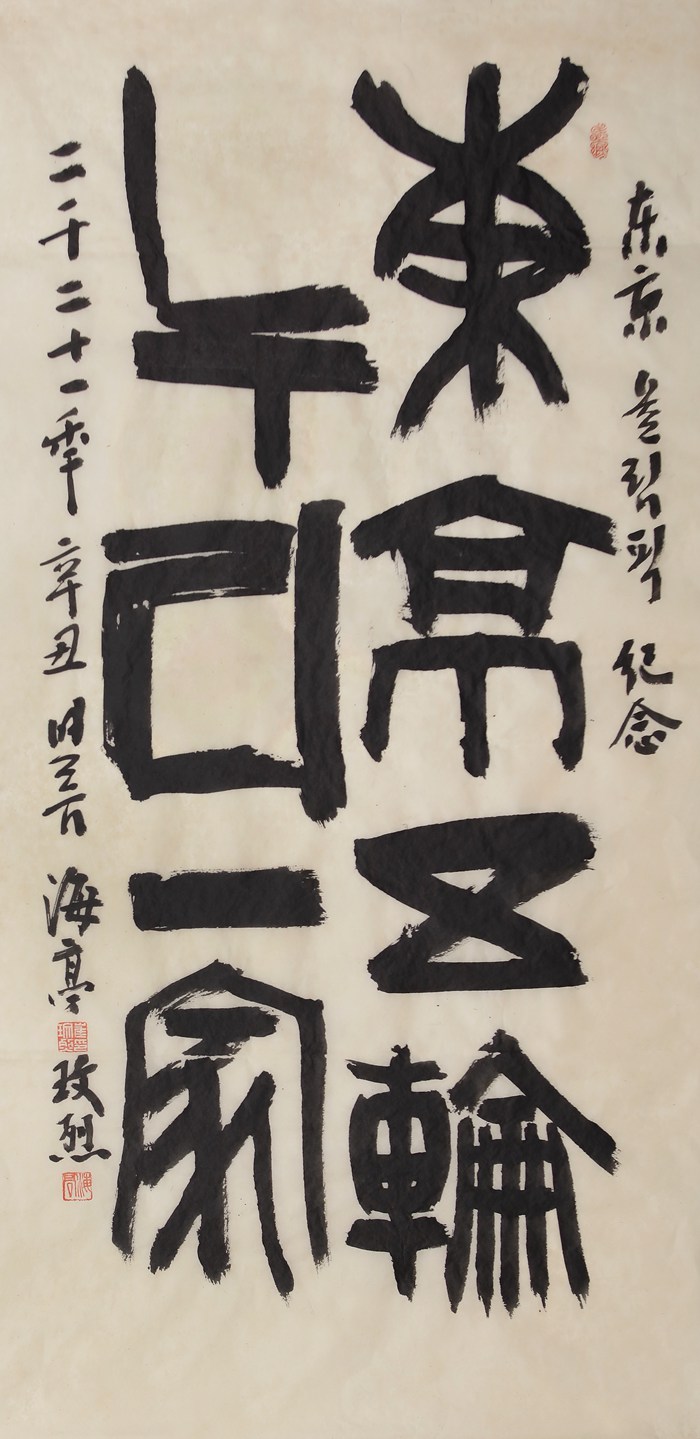 东京 올림픽 纪念
東京五輪
누리一家
二千二十一年 辛丑 海亭 玫烈